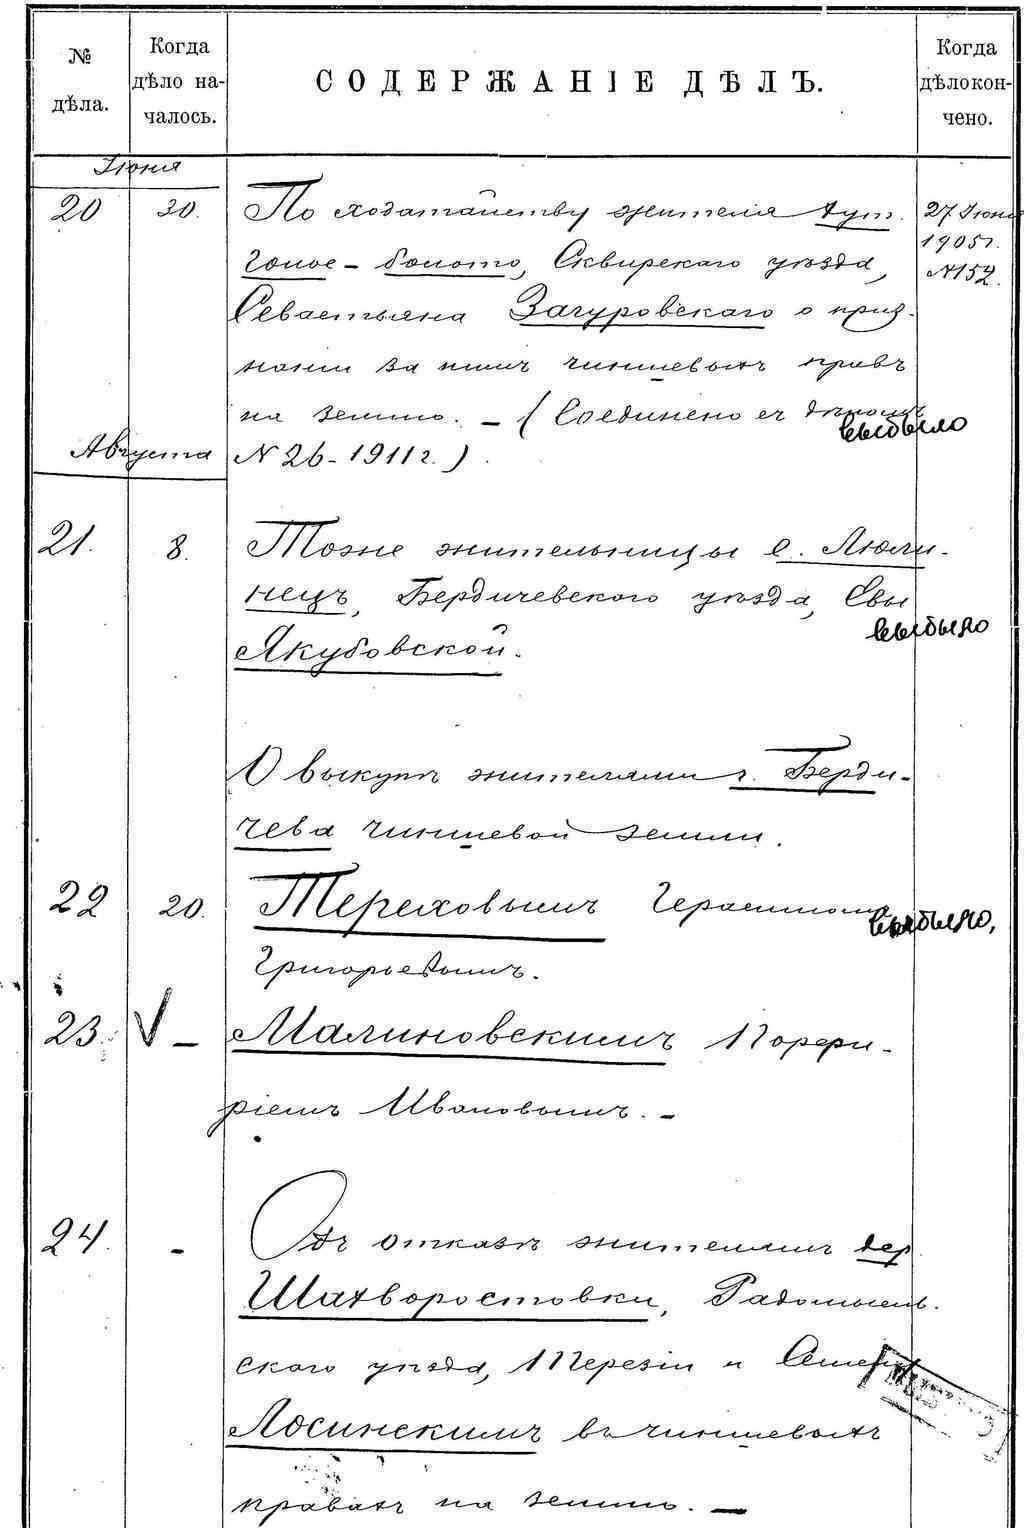 № дѣла.
Когда дѣло на-чалось.
СОДЕРЖАНІЕ ДѢЛЪ.
Когда дѣло кон-чено.
Июня
20 30. По ходатайству жителя хут. 27 Июня
Голое-болото, Сквирскаго уѣзда, 1905г.
№152.
Севастьяна Загуровскаго о приз-
наніи за нимъ чиншевыхъ правъ
на землю. – (Соединено съ дѣломъ
выбыло
Августа №26-1911г.)
21. 8. Тоже жительницы с. Люли-
нецъ, Бердичевского уѣзда, Евы
выбыло
Якубовской.
О выкупѣ жителями г. Берди-
чева чиншевой земли.
22 20. Тереховымъ Герасимомъ
выбыло,
Григорьевымъ.
23. V – Малиновскимъ Порфи-
ріемъ Ивановымъ. –
24. - Объ отказѣ жителямъ дер.
Шахворостовки, Радомысль-
скаго уѣзда, Терезіи и Семену
Лосинскимъ въ чиншевыхъ
правахъ на землю. –